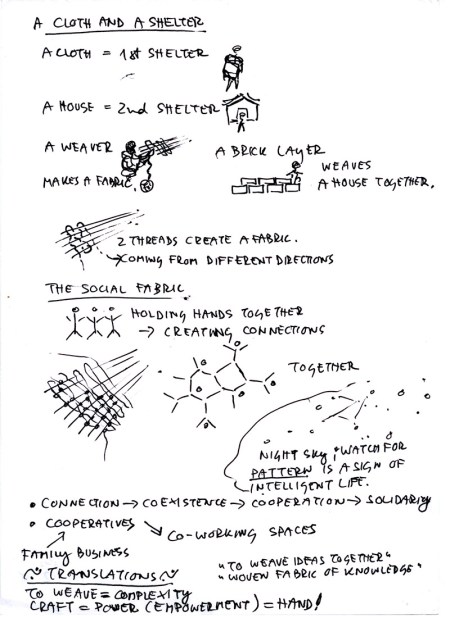 A CLOTH AND A SHELTER
A CLOTH = 1st SHELTER
A HOUSE = 2nd SHELTER
A WEAVER
MAKES A FABRIC.
A BRICK LAYER
WEAVES
A HOUSE TOGETHER.
2 THREADS CREATE A FABRIC.
→ COMING FROM DIFFERENT DIRECTIONS
THE SOCIAL FABRIC
HOLDING HANDS TOGETHER
→ CREATING CONNECTIONS
TOGETHER
NIGHT SKY, WATCH FOR
PATTERN IS A SIGN OF
INTELLIGENT LIFE.
• CONNECTION → COEXISTENCE → COOPERATION → SOLIDARITY
• COOPERATIVES ↘ CO-WORKING SPACES
FAMILY BUSINESS
TRANSLATIONS
"TO WEAVE IDEAS TOGETHER"
"WOVEN FABRIC OF KNOWLEDGE"
TO WEAVE = COMPLEXITY
CRAFT = POWER (EMPOWERMENT) = HAND!